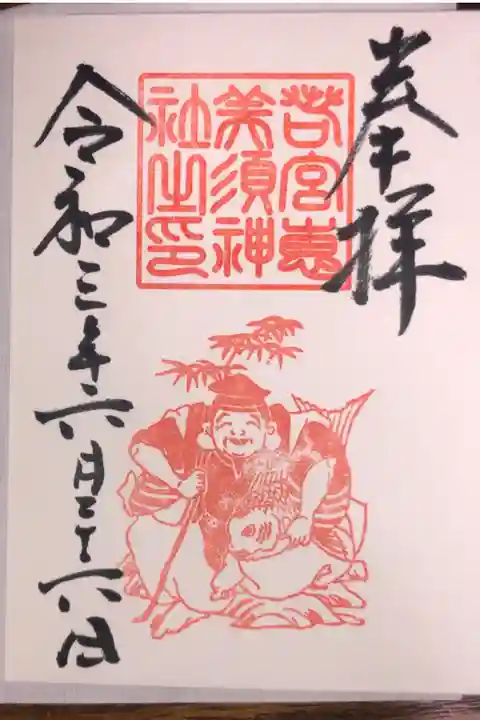 奉拝
若宮恵
美須神
社之印
令和三年六月二十六日